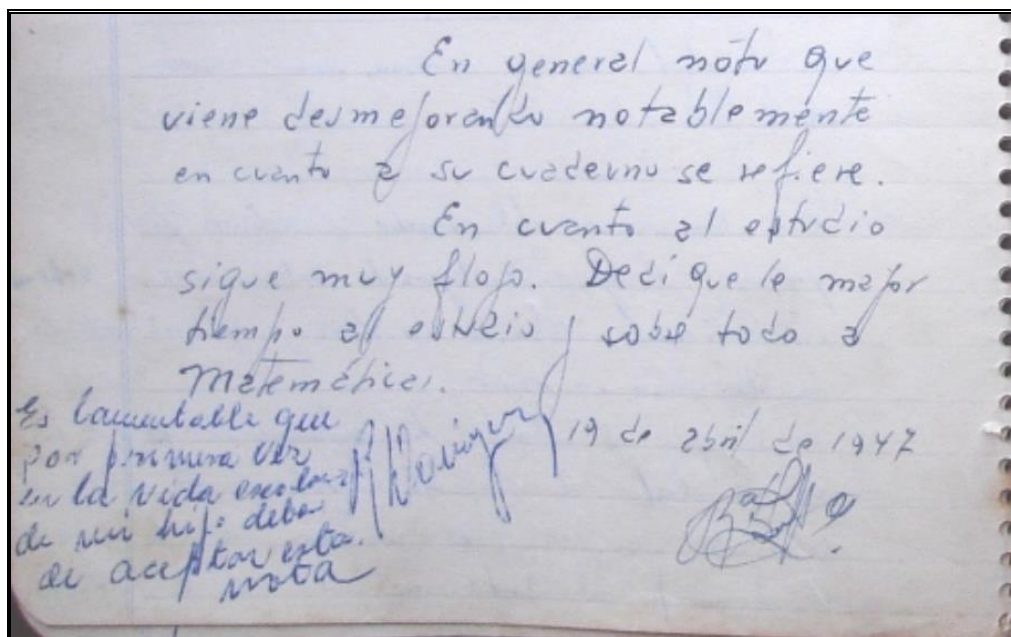 En general noto que
viene desmejorando notablemente
en cuanto a su cuaderno se refiere.
En cuanto al estudio
sigue muy flojo. Dedique le mayor
tiempo al estudio y sobre todo a
Matemáticas.
19 de abril de 1947
Es lamentable que
por primera vez
en la vida escolar
de mi hijo deba
de aceptar esta
nota